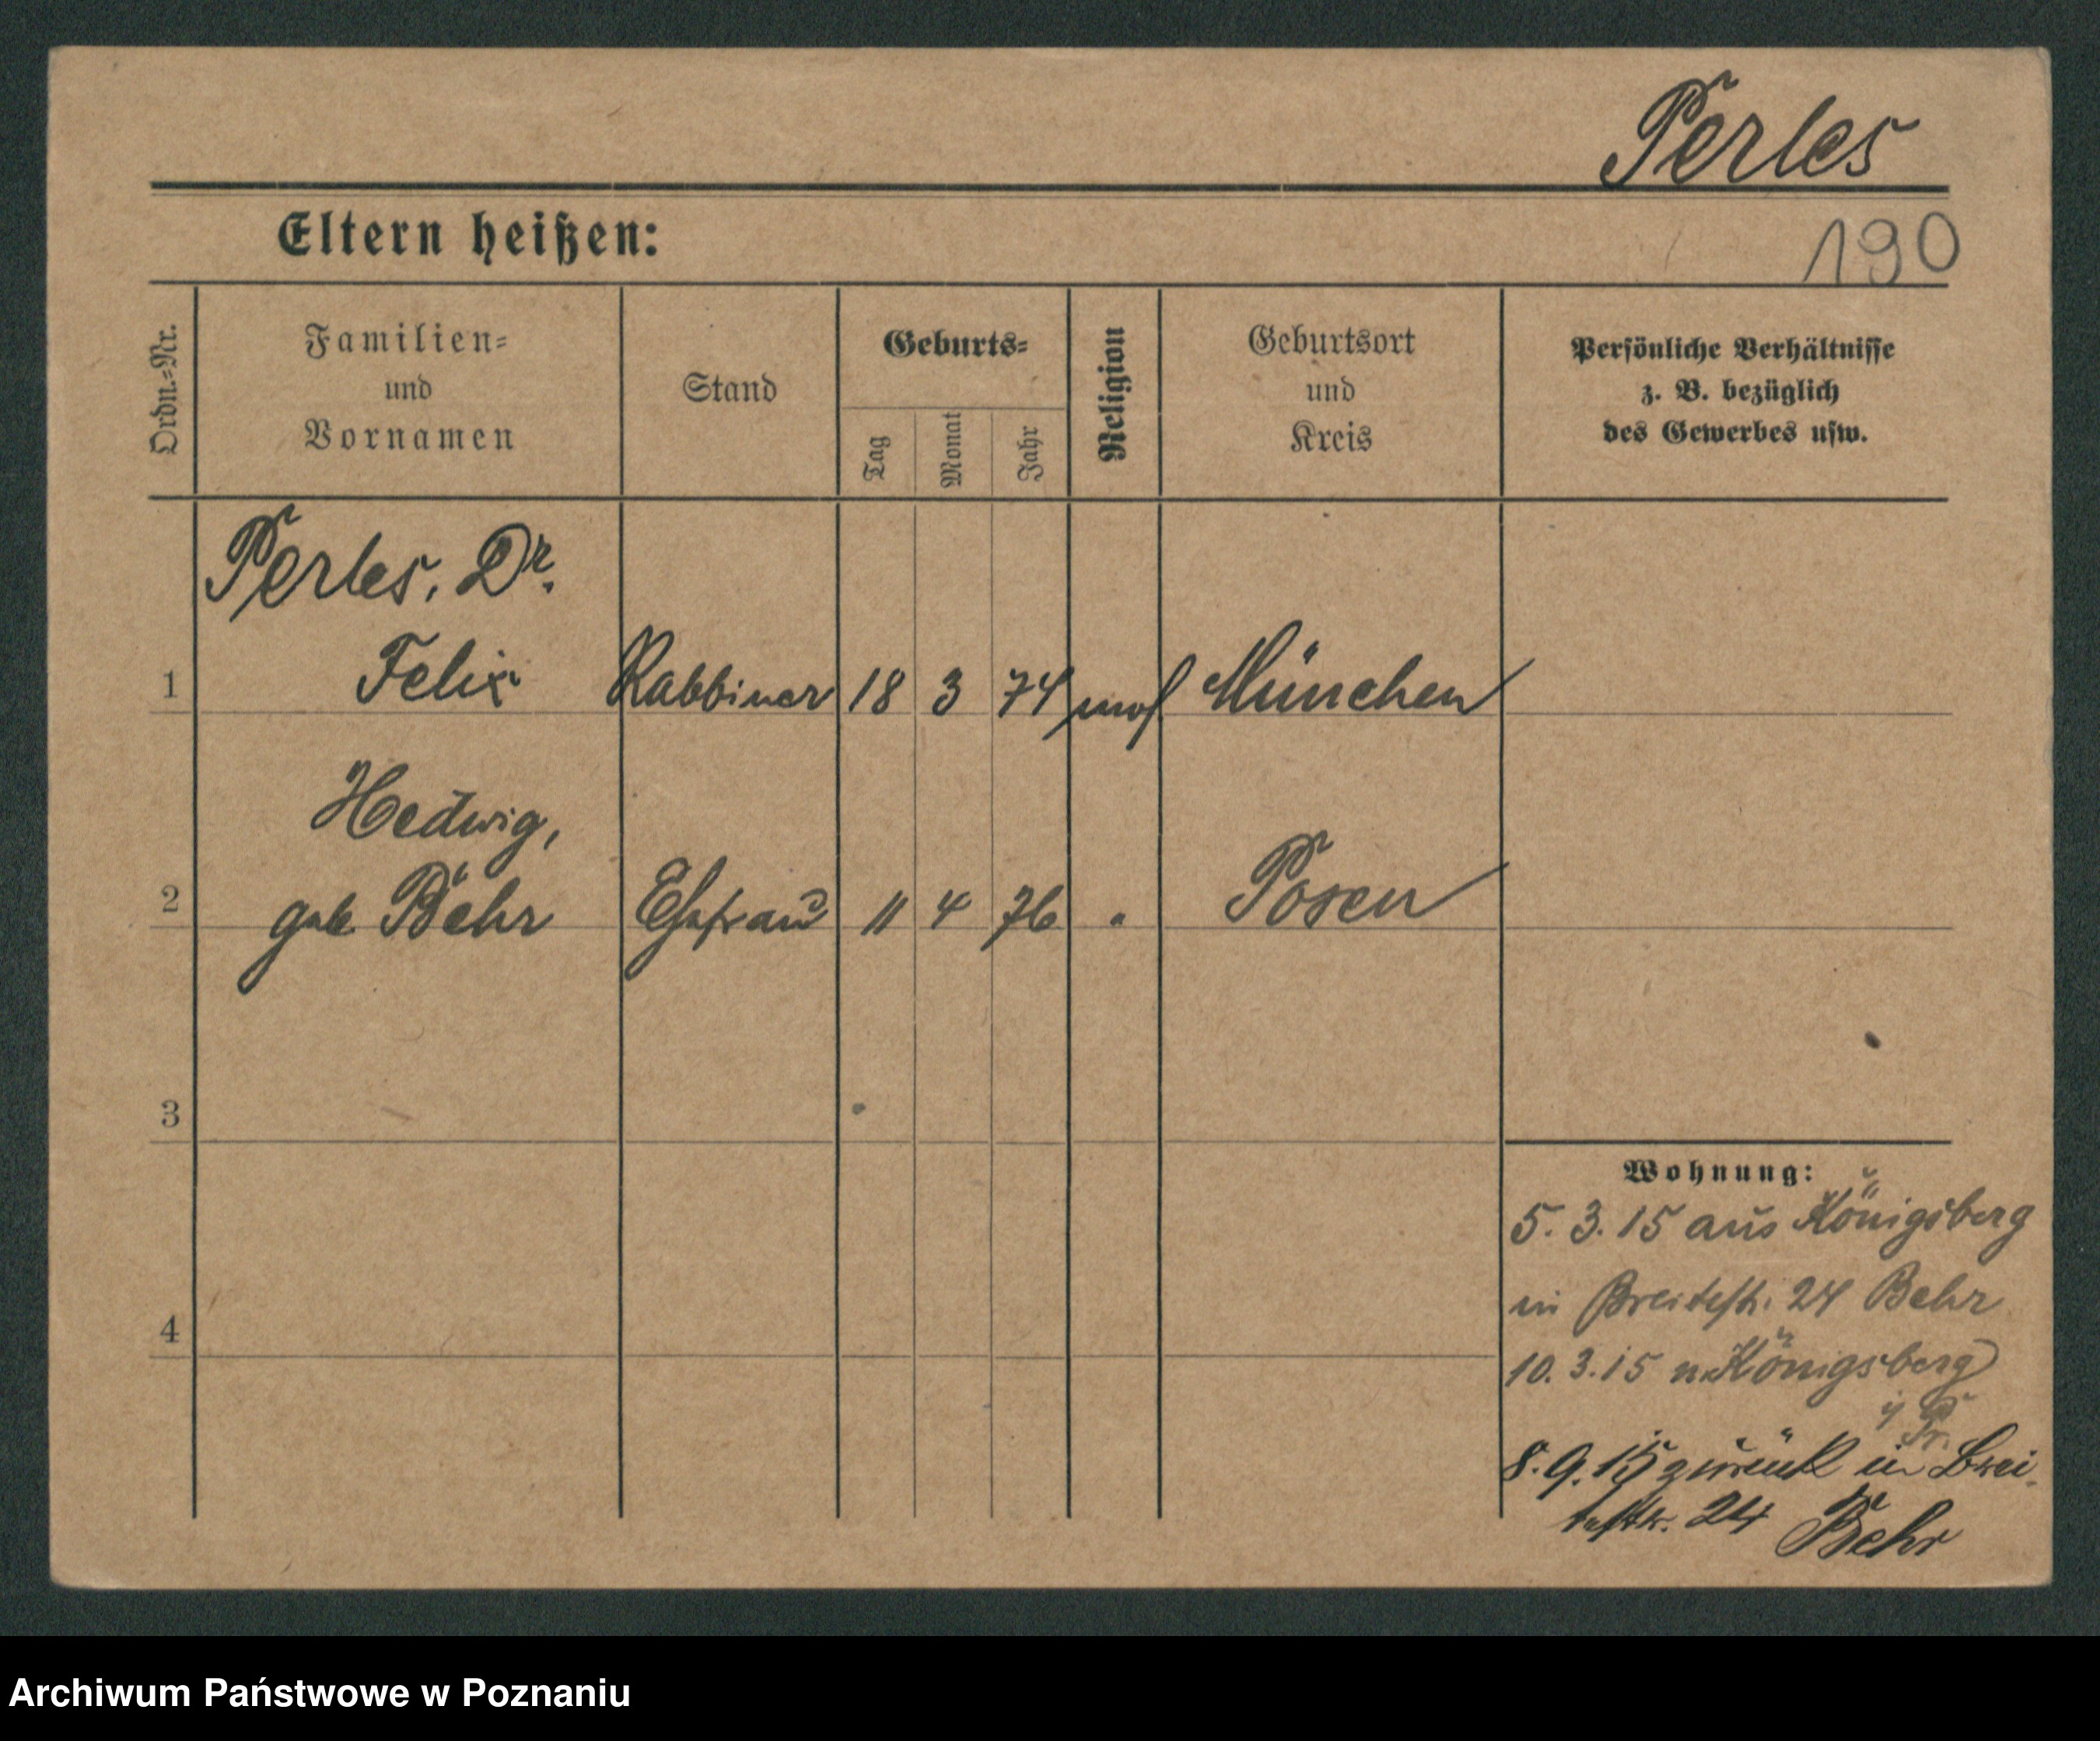 Perles
Eltern heißen:
190
Ordn.=Nr.
Familien=
und
Vornamen
Stand
Geburts=
Tag
Monat
Jahr
Religion
Geburtsort
und
Kreis
Persönliche Verhältnisse
z. B. bezüglich
des Gewerbes usw.
Perles, Dr.
1 Felix Rabbiner 18 3 74 mos München
Hedwig,
2 geb Behr Ehefrau 11 4 76 " Posen
3
4
Wohnung:
5. 3. 15 aus Königsberg
in Breitestr. 24 Behr
10. 3. 15 n. Königsberg
i/ Pr.
8. 9. 15 zurück in Brei-
testr. 24 Behr
Archiwum Państwowe w Poznaniu